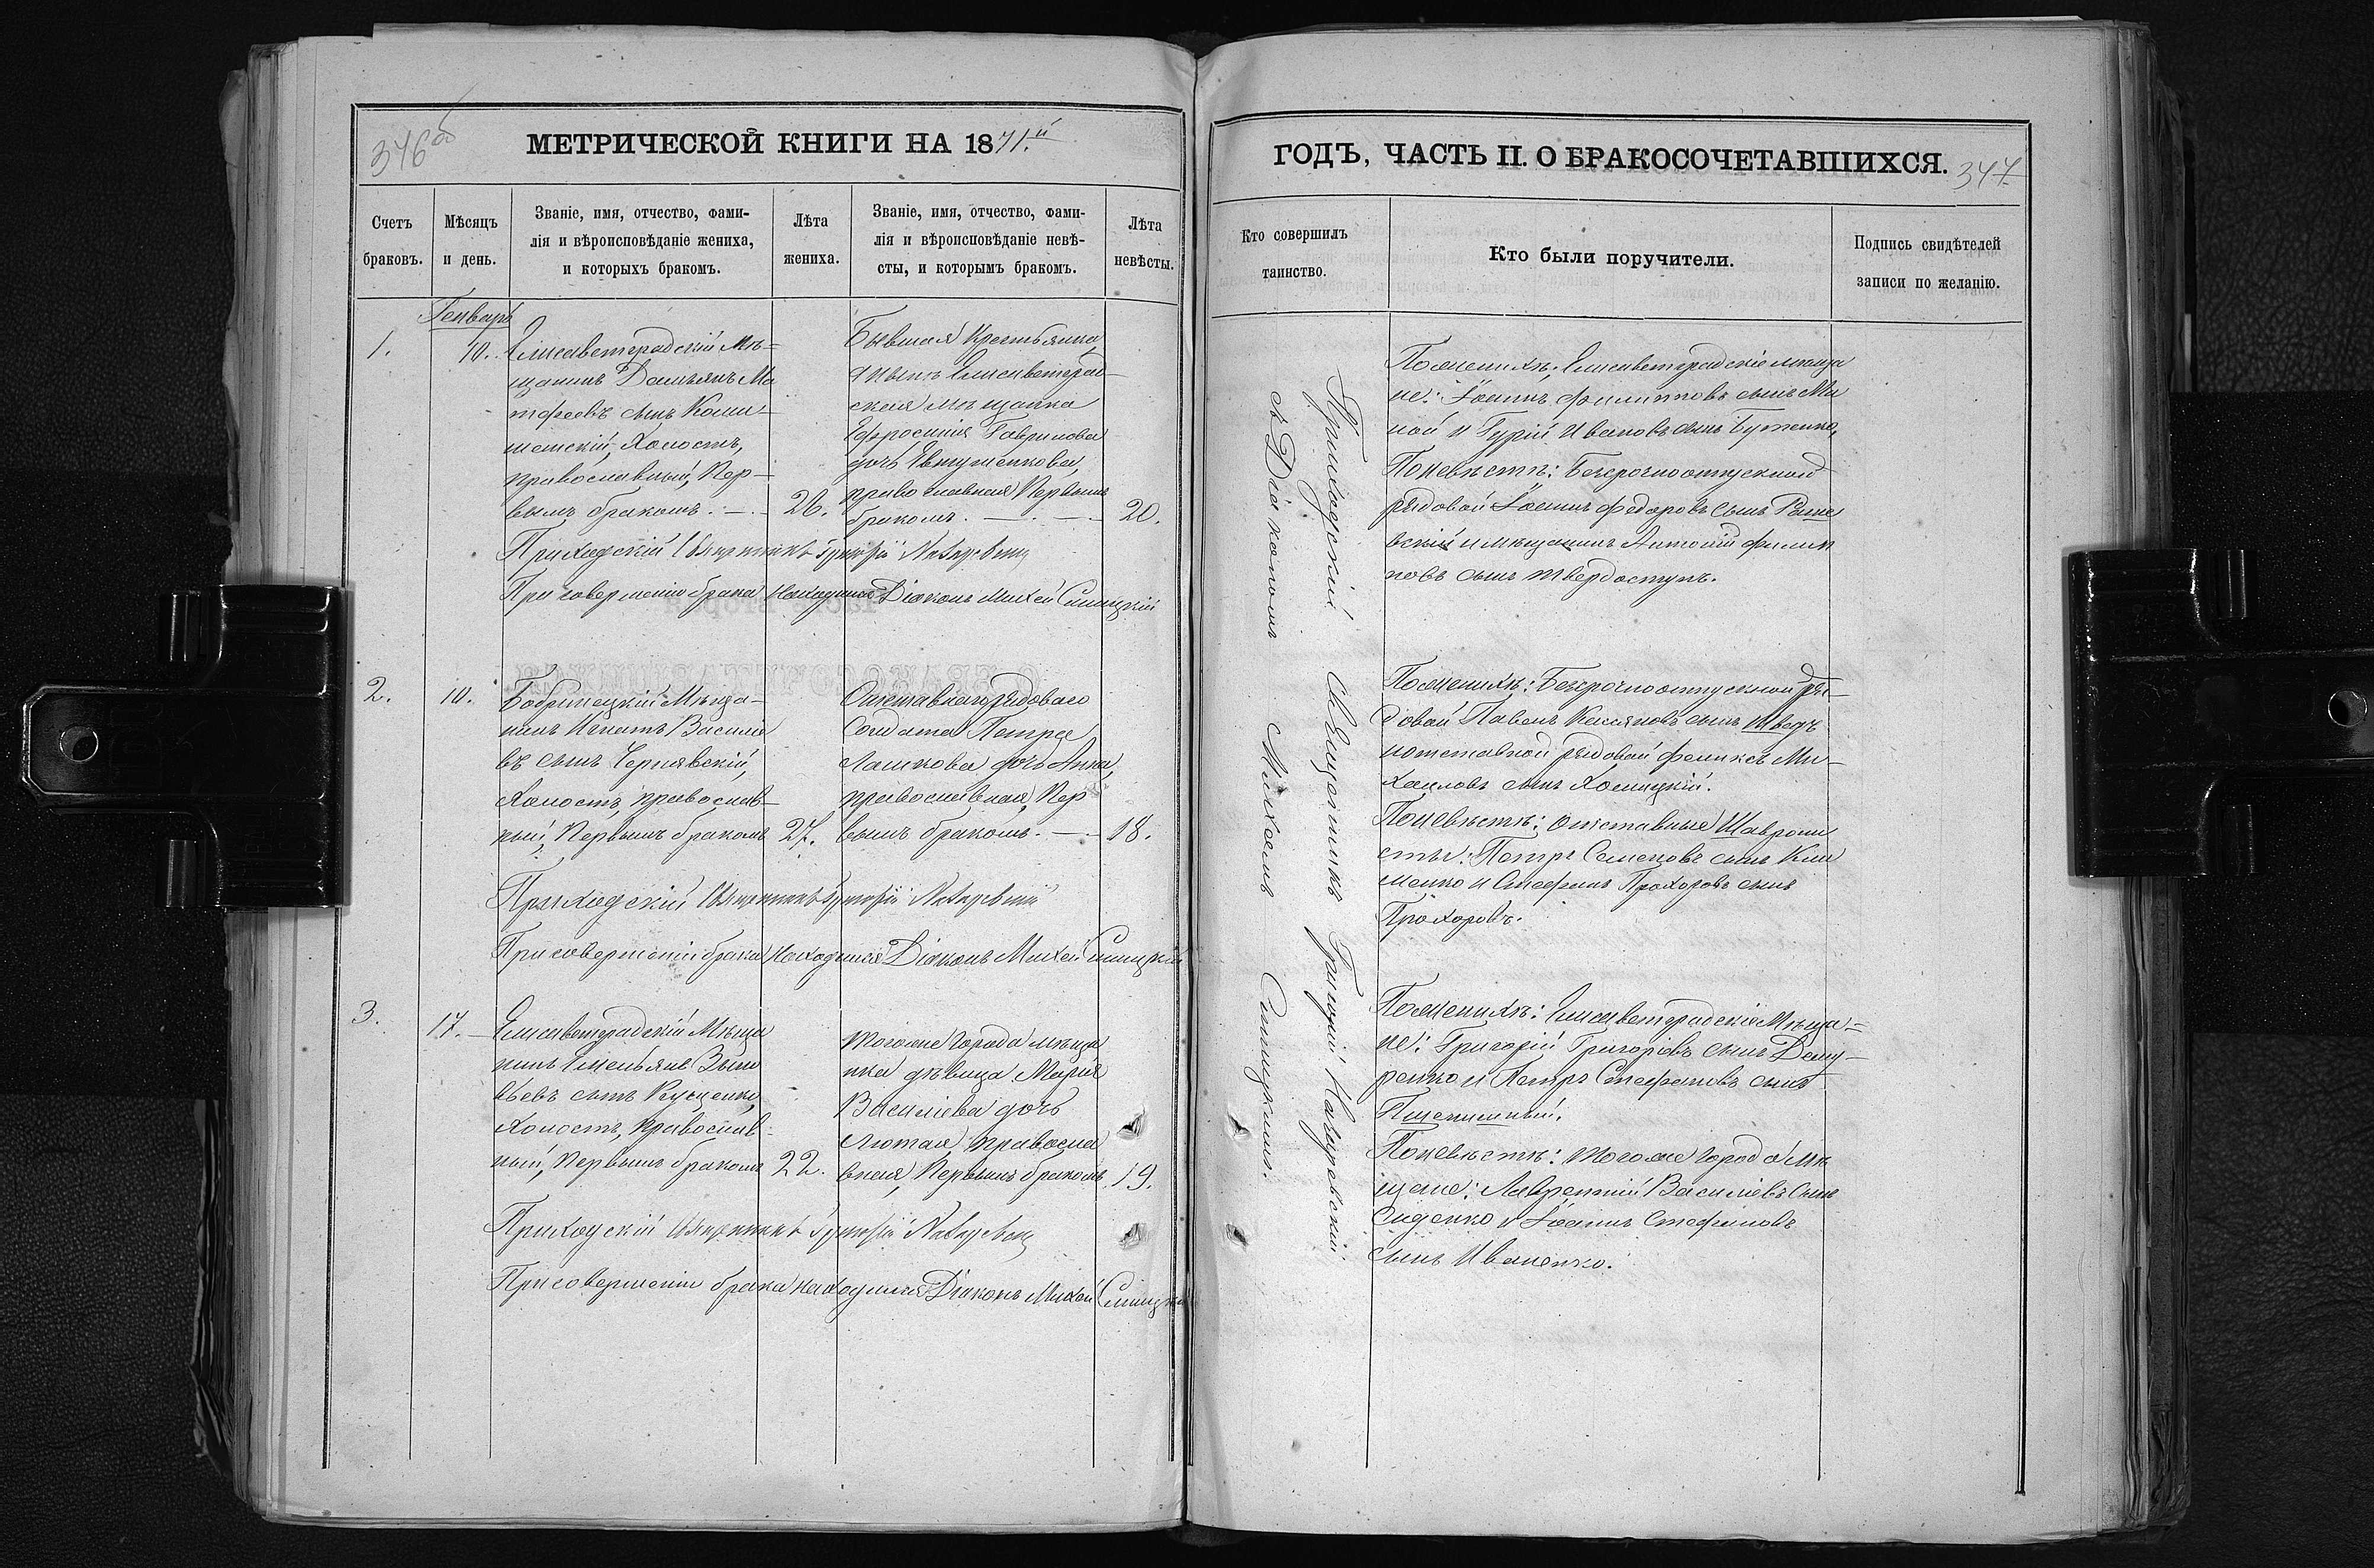 346 об
МЕТРИЧЕСКОЙ КНИГИ НА 1871.й
Счетъ браковъ.
Мѣсяцъ и день.
Званіе, имя, отчество, фами-
лія и вѣроисповѣданіе жениха,
и которыхъ бракомъ.
Лѣта жениха.
Званіе, имя, отчество, фами-
лія и вѣроисповѣданіе невѣ-
сты, и которымъ бракомъ.
Лѣта невѣсты.
Генварь
1.
10.
Елисаветградскій Мѣ=
щанинъ Дамьянъ Ма
тфеевъ сынъ
Холостъ,
православный, Пер-
вымъ бракомъ.
26.
Бывшая Крестьянка
а нынѣ Елисаветград-
ская мѣщанка
Ефросинія Гаврилова
дочь Евтушенкова,
православная Первымъ
бракомъ.
20.
Приходскій Священникъ Григорій
При совершеніи брака находился Діаконъ Михей Синицкій
2.
10.
Бобринецкій Мѣща-
нинъ Игнатъ Василіе
въ сынъ Чернявскій,
Холостъ, православ-
ный, Первымъ бракомъ
27.
Отставнаго рядоваго
Солдата Петра
Лашкова дочь Анна,
православная, Пер
вымъ бракомъ.
18.
Приходскій Священникъ Григорій
При совершеніи брака находился Діаконъ Михей Синицкій
3.
17.
Елисаветградскій Мѣща
нинъ Емельянъ
сынъ Куценко,
Холостъ, православ-
ный, Первымъ бракомъ
22.
Тогоже города мѣща
нка дѣвица Марія
Василіева дочь
Лютая, правосла
вная, Первымъ бракомъ
19.
Приходскій Священникъ Григорій
При совершеніи брака находился Діаконъ Михей Синицкій
ГОДЪ, ЧАСТЬ II. О БРАКОСОЧЕТАВШИХСЯ.
347.
Кто совершилъ таинство.
Кто были поручители.
Подпись свидѣтелей записи по желанію.
Приходскій Священникъ Григорій
съ Діакономъ Михеемъ Синицкимъ.
Пожениху: Елисаветградскіе мѣща
не: Іоаннъ Филипповъ сынъ Ми
ной и Гурій Ивановъ сынъ Бутенко,
Поневѣстѣ: Безсрочноотпускной
рядовой Іоаннъ Федоровъ сынъ Рыше
вскій и мѣщанинъ Антоній Филип
повъ сынъ Твердоступъ.
Пожениху: Безсрочноотпускной ря-
довой Павелъ Касіяновъ сынъ Шведъ
иотставной рядовой Феликсъ Ми-
хайловъ сынъ Холицкій.
Поневѣстѣ: отставные
Петръ Семеновъ сынъ Кли
менко и Стефанъ Прохоровъ сынъ
Прохоровъ.
Пожениху: Елисаветградскіе Мѣща=
не: Григорій Григоріевъ сынъ Дему-
ренко и Петръ Стефановъ сынъ
Пшеничный.
Поневѣстѣ: Тогоже города Мѣ
щане: Лаврентій Василіевъ сынъ
Сиденко и Іоаннъ Стефановъ
сынъ Иваненко.